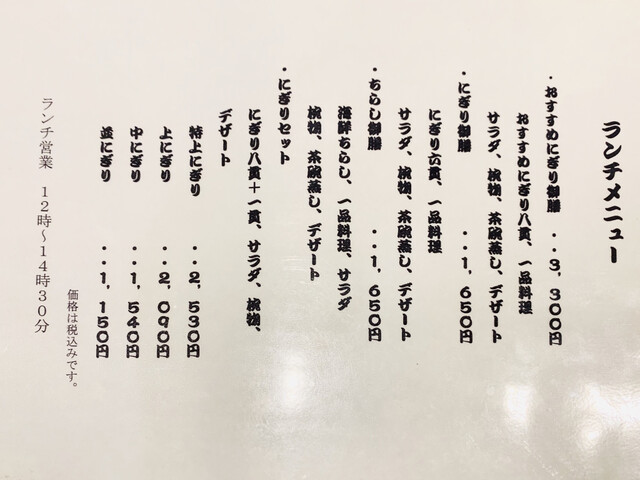 ランチメニュー
・おすすめにぎり御膳 ・・3,300円
おすすめにぎり八貫、一品料理
サラダ、椀物、茶碗蒸し、デザート
・にぎり御膳 ・・1,650円
にぎり六貫、一品料理
サラダ、椀物、茶碗蒸し、デザート
・ちらし御膳 ・・1,650円
海鮮ちらし、一品料理、サラダ
椀物、茶碗蒸し、デザート
・にぎりセット
にぎり八貫+一貫、サラダ、椀物、
デザート
特上にぎり ・・2,530円
上にぎり ・・2,090円
中にぎり ・・1,540円
並にぎり ・・1,150円
価格は税込みです。
ランチ営業 12時~14時30分